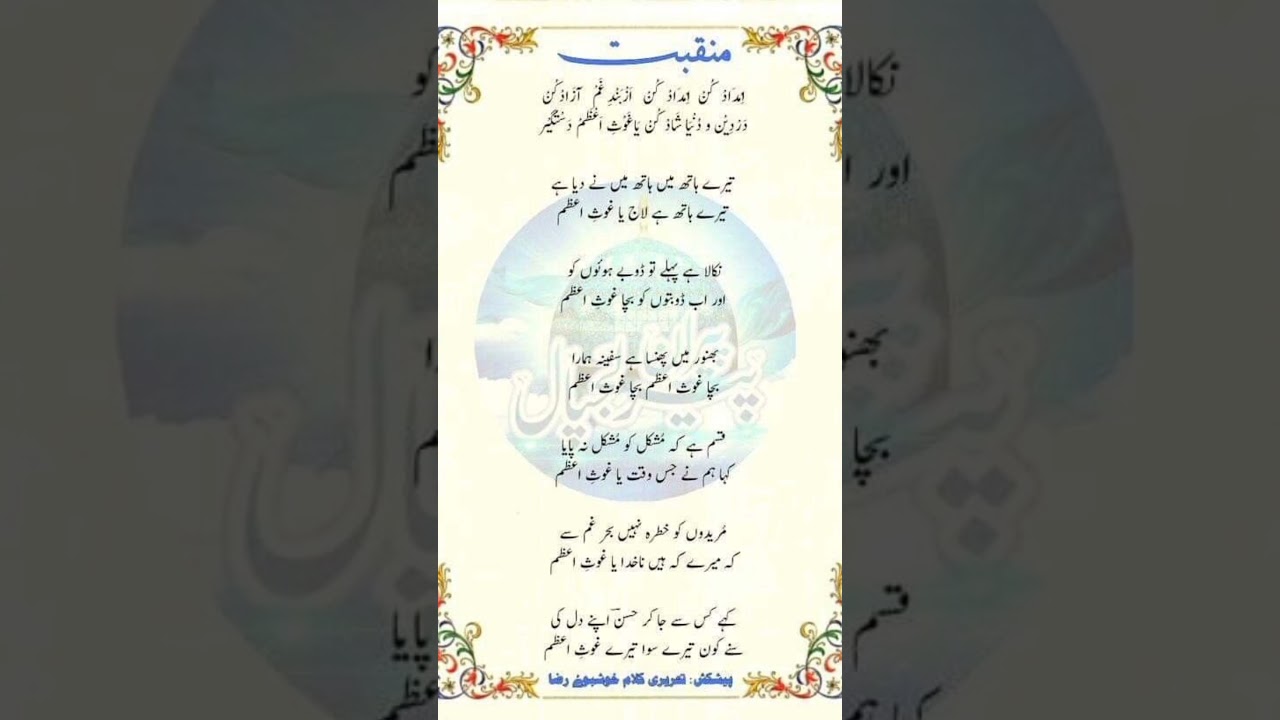 منقبت
اِمدَاد کُنْ اِمدَاد کُنْ اَزْبَنْدِ غَمْ آزَاد کُنْ
دَر دِیْن و دُنْیَا شَاد کُنْ یَا غَوْثِ اَعْظَمْ دَسْتگیْر
تیرے ہاتھ میں ہاتھ میں نے دیا ہے
تیرے ہاتھ ہے لاج یا غوثِ اعظم
نکالا ہے پہلے تو ڈوبے ہوئوں کو
اور اب ڈوبتوں کو بچا غوثِ اعظم
بھنور میں پھنسا ہے سفینہ ہمارا
بچا غوث اعظم بچا غوث اعظم
قسم ہے کہ مُشکل کو مُشکل نہ پایا
کہا ہم نے جس وقت یا غوثِ اعظم
مُریدوں کو خطرہ نہیں بحر غم سے
کہ میرے کہ ہیں ناخدا یا غوثِ اعظم
کہے کس سے جا کر حسنؔ اپنے دل کی
سنے کون تیرے سوا تیرے غوثِ اعظم
پیشکش: تحریری کلام خوشبوئے رضا